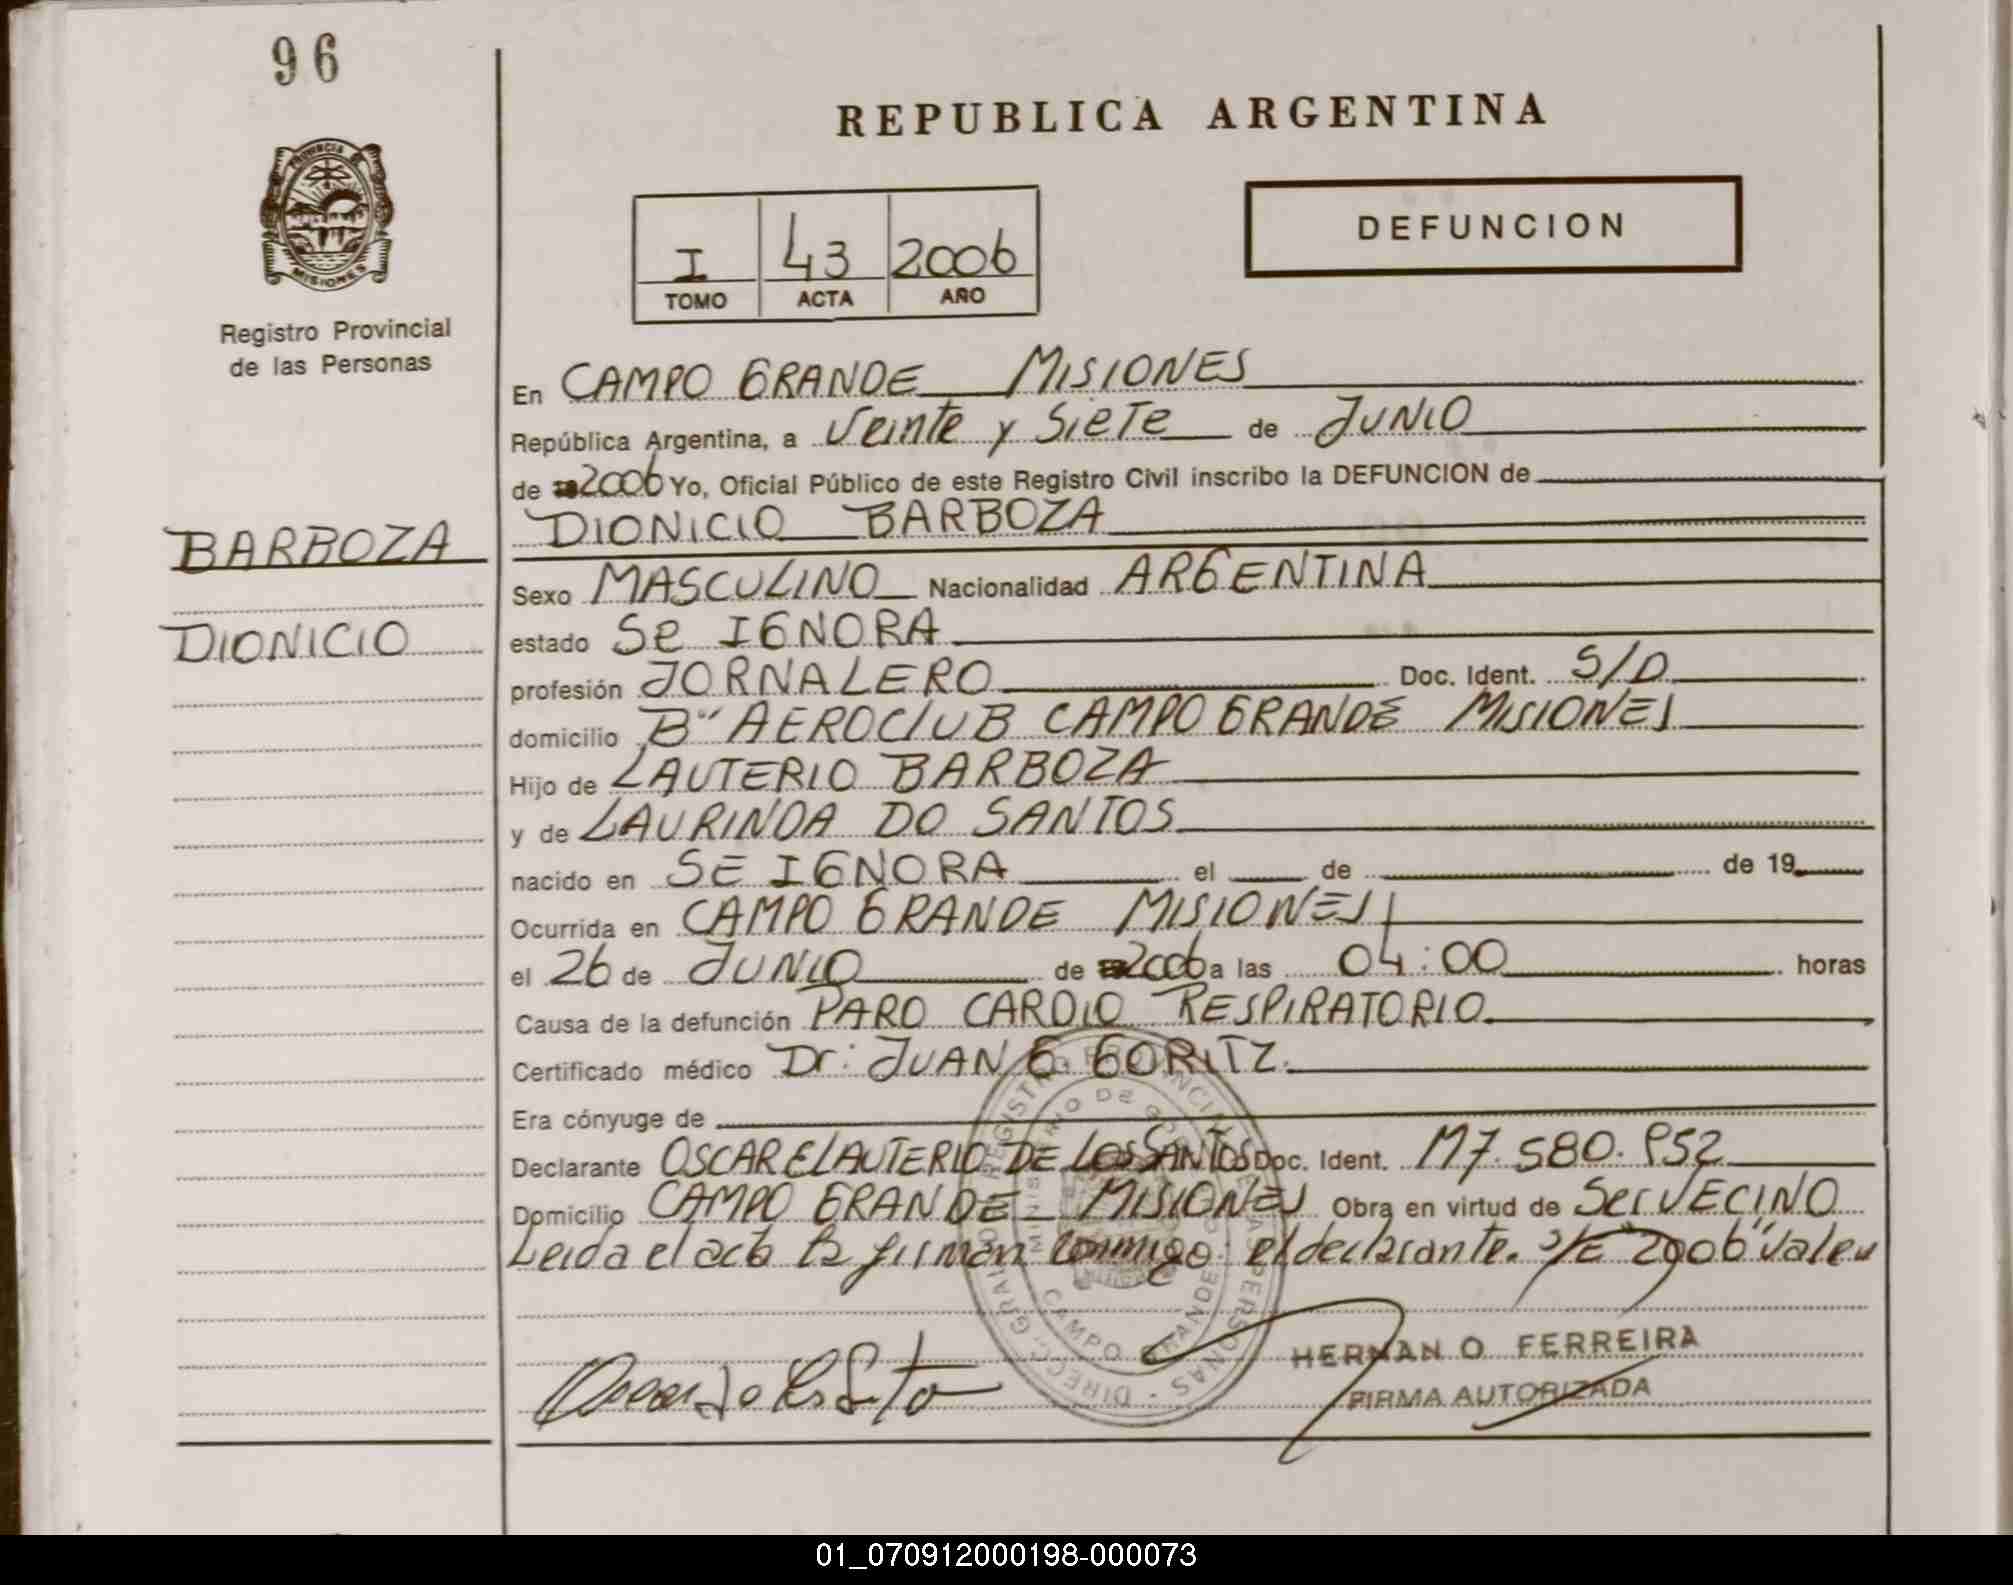 96
REPUBLICA ARGENTINA
PROVINCIA DE
MISIONES
I 43 2006
TOMO ACTA AÑO
DEFUNCION
Registro Provincial
de las Personas
BARBOZA
DIONICIO
En CAMPO GRANDE MISIONES
República Argentina, a Veinte y Siete de JUNIO
de 2006 Yo, Oficial Público de este Registro Civil inscribo la DEFUNCION de
DIONICIO BARBOZA
Sexo MASCULINO Nacionalidad ARGENTINA
estado Se IGNORA
profesión JORNALERO Doc. Ident. S/D
domicilio B° AEROCLUB CAMPO GRANDE MISIONES
Hijo de LAUTERIO BARBOZA
y de LAURINDA DO SANTOS
nacido en SE IGNORA el de de 19
Ocurrida en CAMPO GRANDE MISIONES
el 26 de JUNIO de 2006 a las 04:00 horas
Causa de la defunción PARO CARDIO RESPIRATORIO
Certificado médico Dr: JUAN G GORITZ
Era cónyuge de
Declarante OSCAR ELAUTERIO DE LOS SANTOS Doc. Ident. M7.580.952
Domicilio CAMPO GRANDE MISIONES Obra en virtud de Ser VECINO
Leida el acta la firman conmigo el declarante. s/E "2006" Valen
HERNAN O. FERREIRA
FIRMA AUTORIZADA
01_070912000198-000073